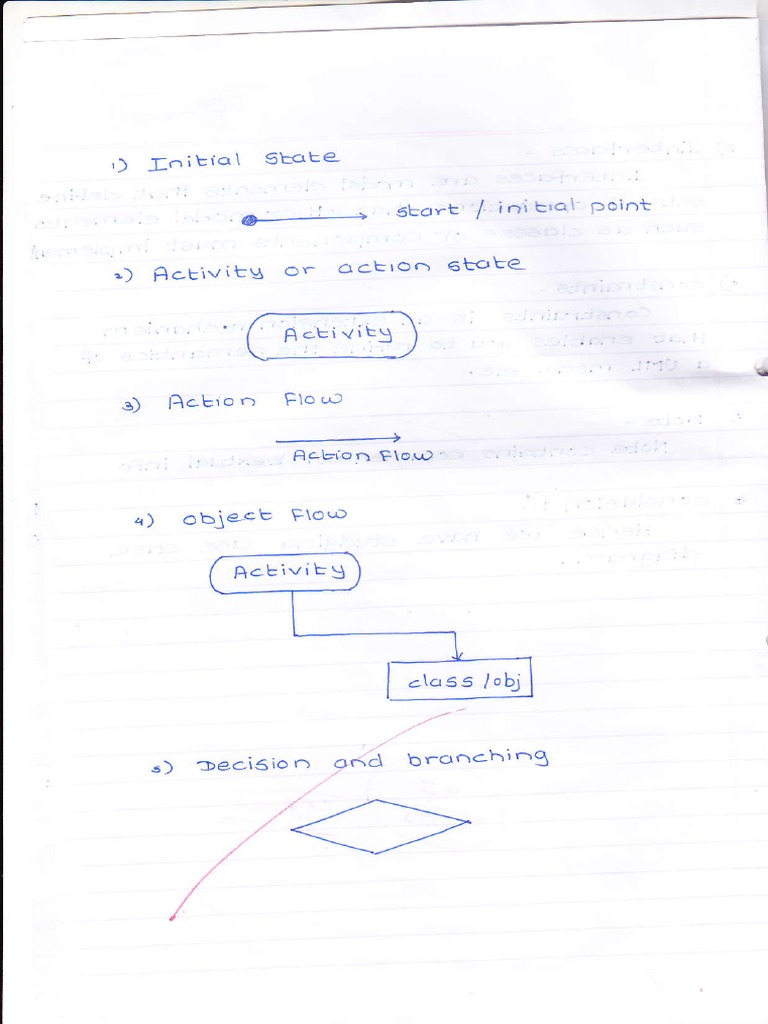 1) Initial state
start / initial point
2) Activity or action state
Activity
3) Action Flow
Action Flow
4) object Flow
Activity
class /obj
5) Decision and branching